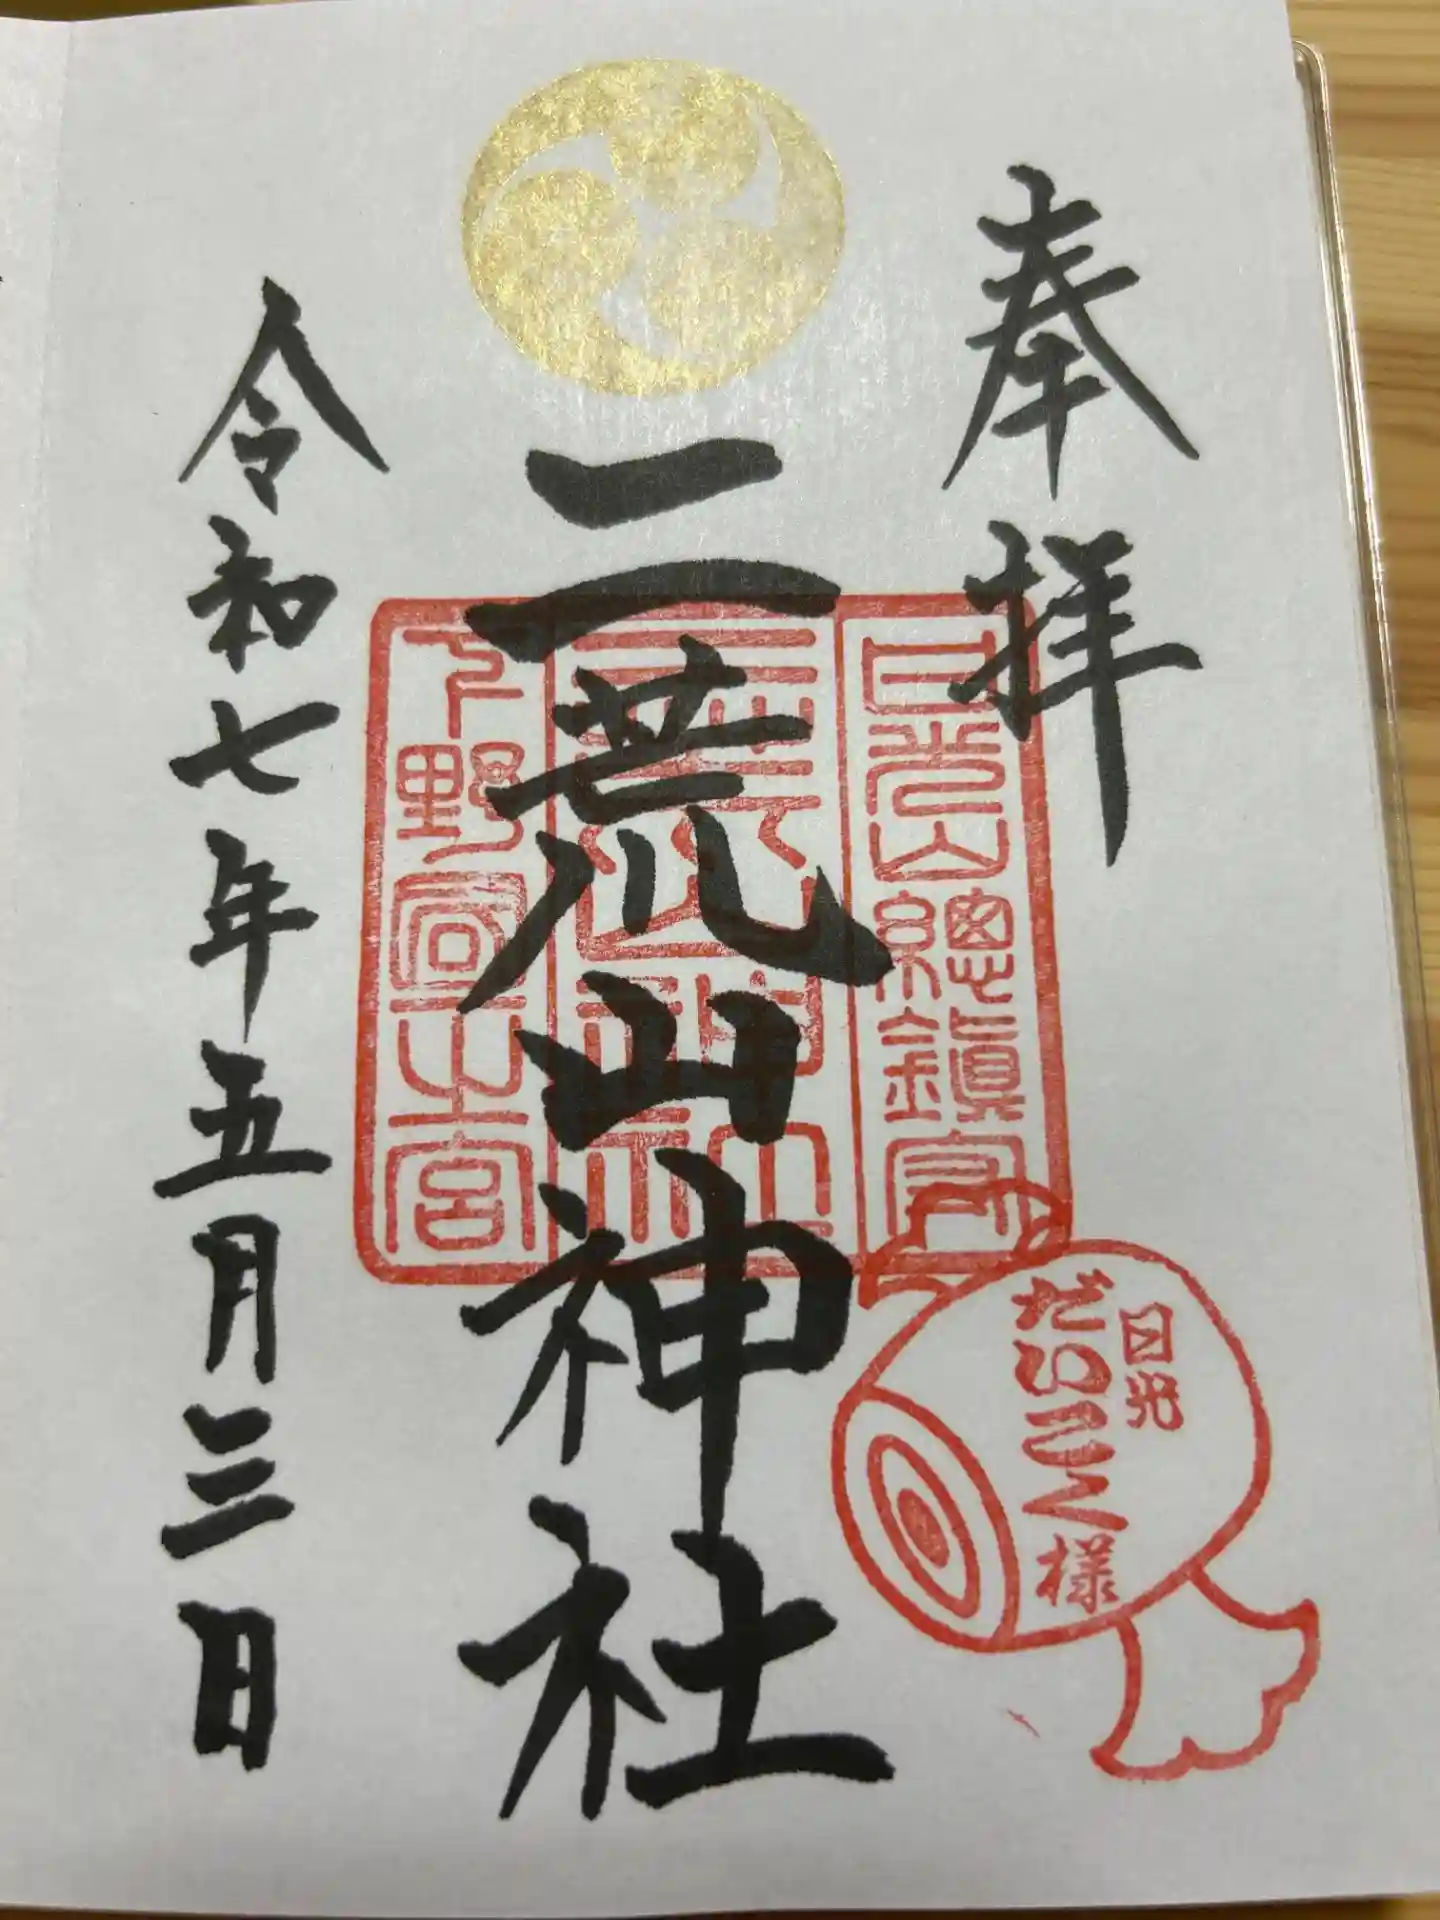 奉拝
日光山總鎮守
二荒山神社
二荒山神社
下野國一之宮
令和七年五月三日
日光
だいこく様